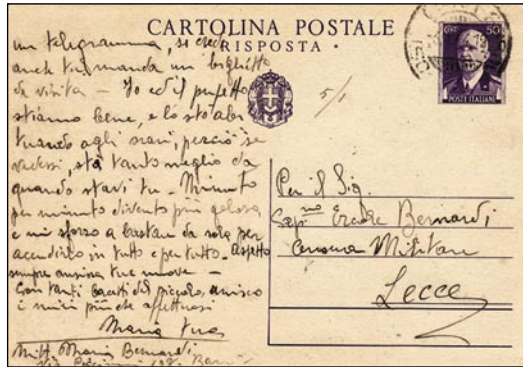 CARTOLINA POSTALE
RISPOSTA
50
POSTE ITALIANE
5/1
un telegramma, si crede
anch tu manda un biglietto
da visita - Io ed il
stiamo bene, e lo sto abi
tuando agli orari, perciò se
vedessi, sta tanto meglio da
quando stavi tu - Minuto
per minuto divento più gelosa
e mi sforzo a bastare da sola per
accudirlo in tutto e per tutto - Aspetto
sempre ansiosa tue nuove -
Con tanti bacetti del piccolo, unisco
i miei più che affettuosi
Maria tua
Mitt. Maria Bernardi
Via 198. Bari
Per il Sig.
Ercole Bernardi
Censura Militare
Lecce